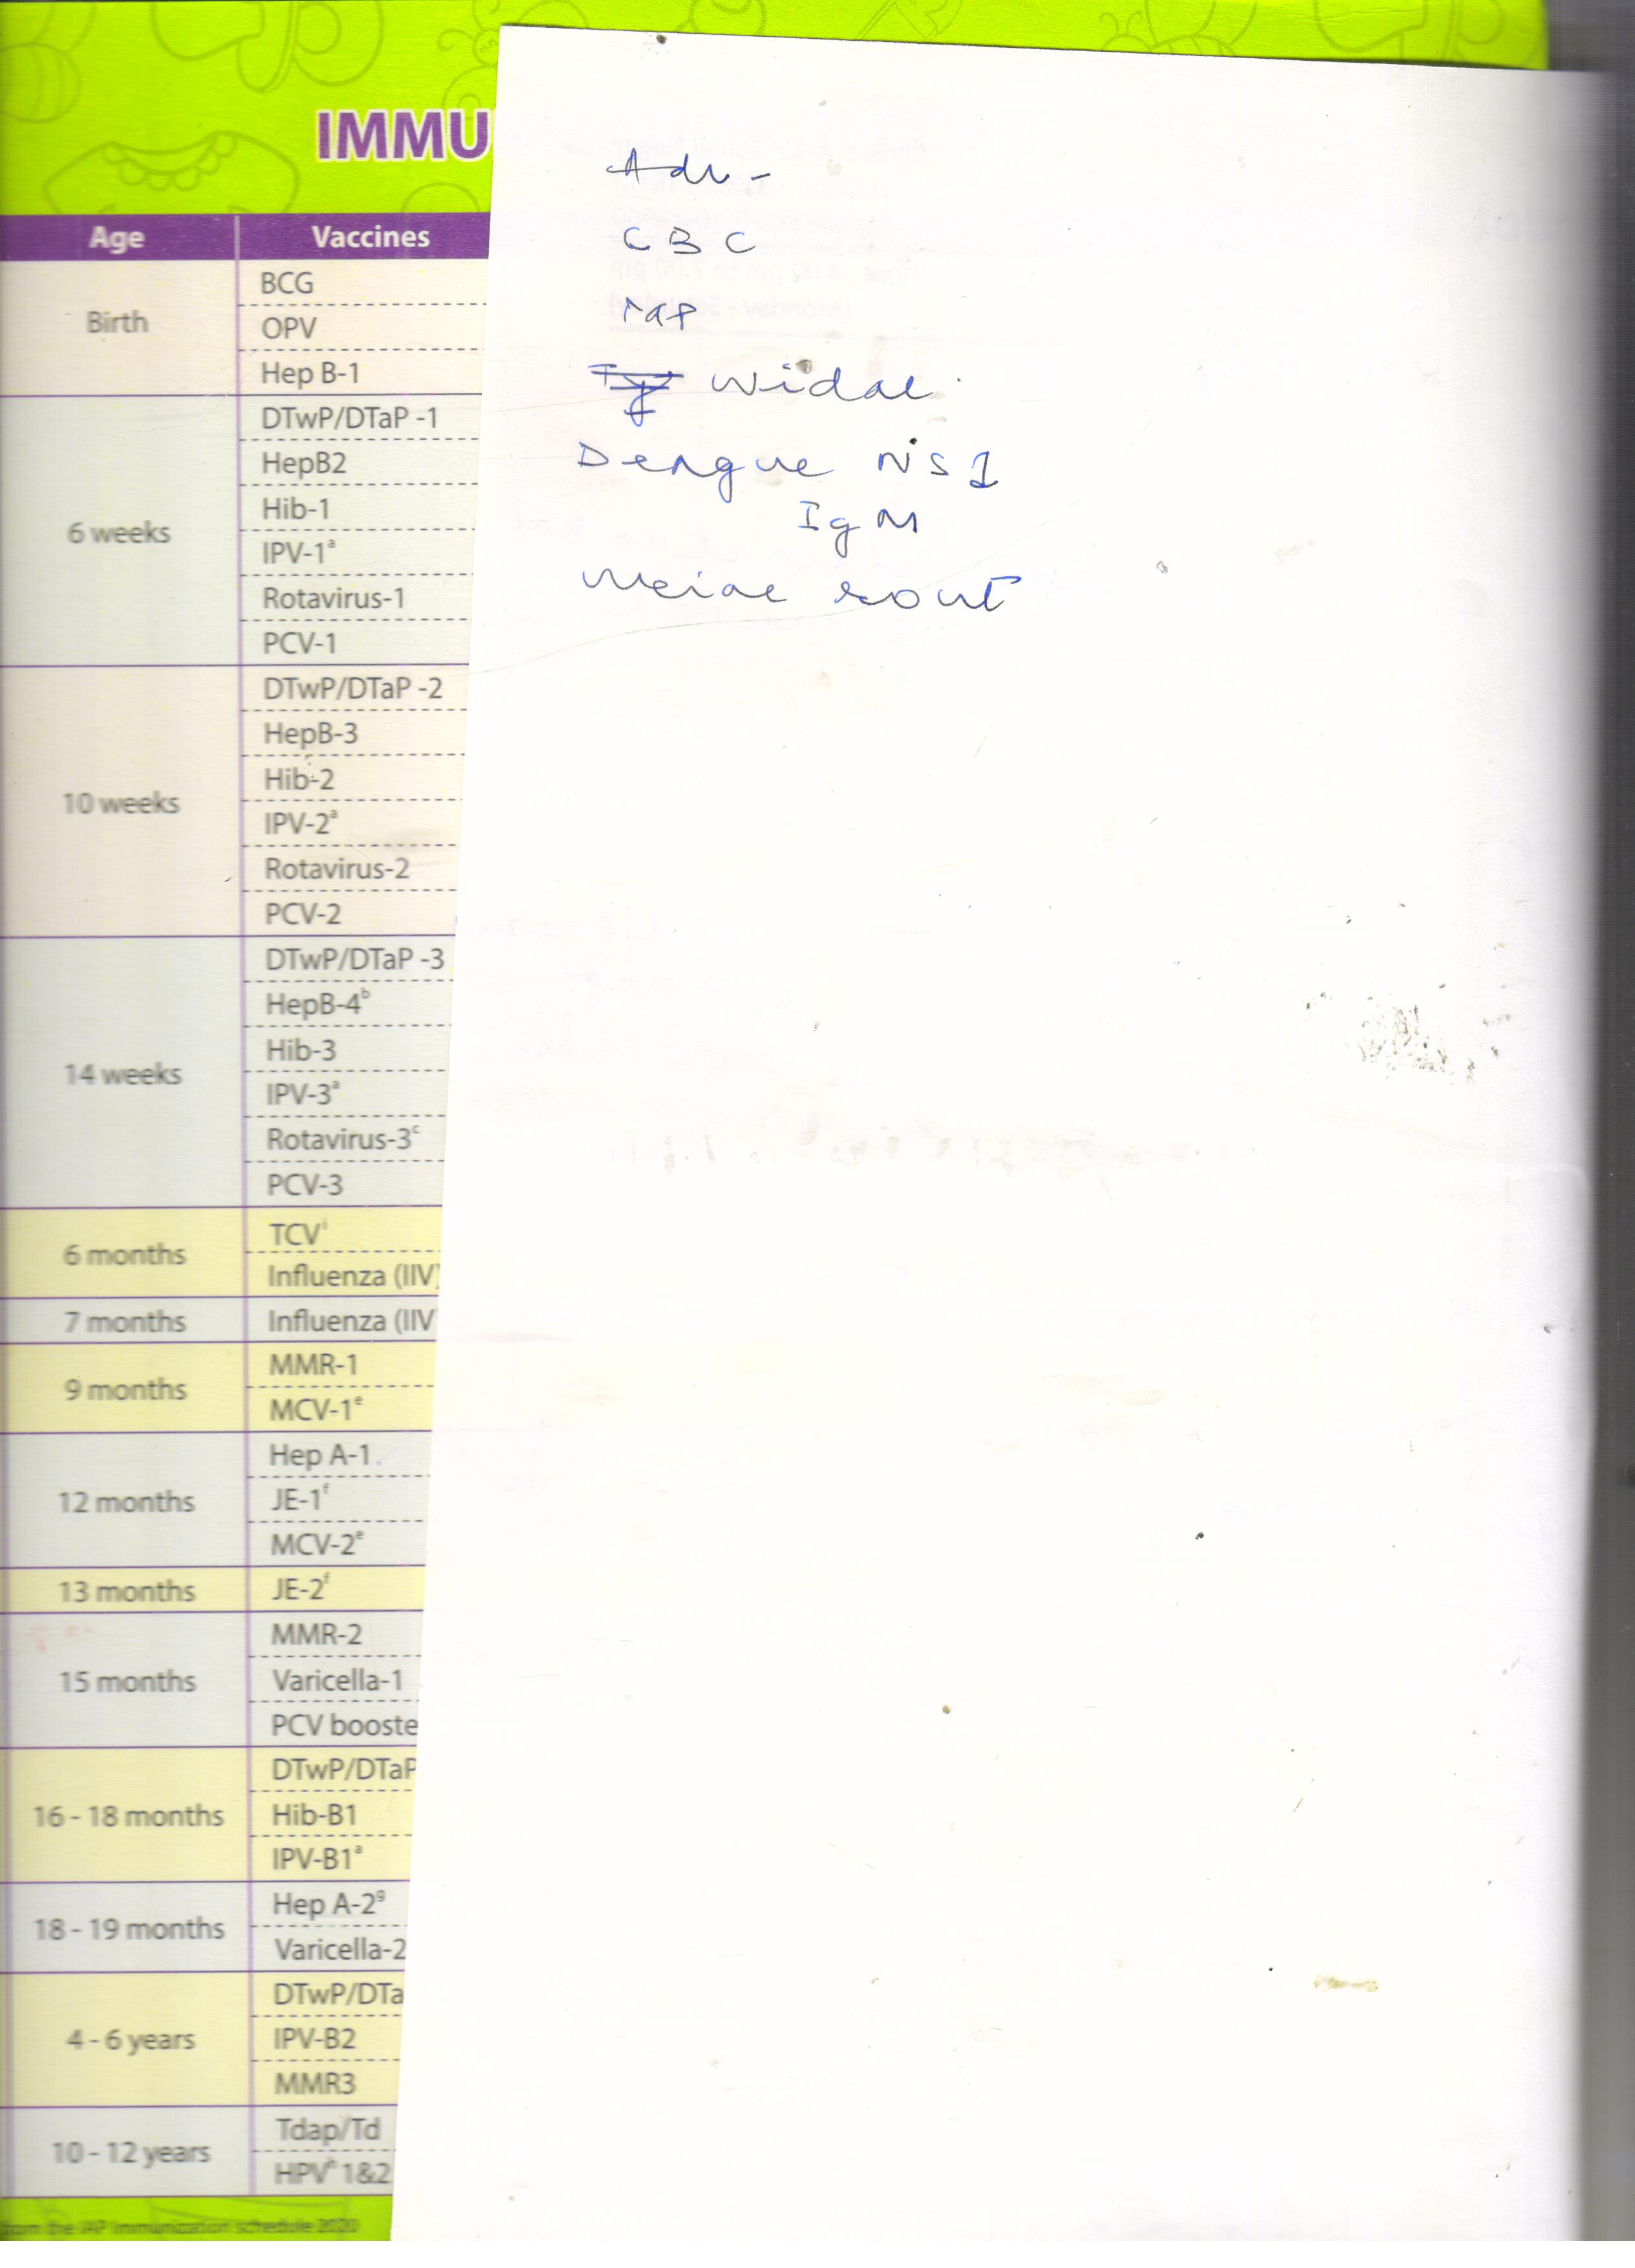 IMMU
Age Vaccines
Birth
BCG
OPV
Hep B-1
6 weeks
DTwP/DTaP -1
HepB2
Hib-1
IPV-1ª
Rotavirus-1
PCV-1
10 weeks
DTwP/DTaP -2
HepB-3
Hib-2
IPV-2ª
Rotavirus-2
PCV-2
14 weeks
DTwP/DTaP -3
HepB-4ᵇ
Hib-3
IPV-3ª
Rotavirus-3ᶜ
PCV-3
6 months
TCVⁱ
Influenza (IIV)
7 months
Influenza (IIV
9 months
MMR-1
MCV-1ᵉ
12 months
Hep A-1
JE-1ᶠ
MCV-2ᵉ
13 months
JE-2ᶠ
15 months
MMR-2
Varicella-1
PCV booste
16 - 18 months
DTwP/DTaP
Hib-B1
IPV-B1ª
18 - 19 months
Hep A-2ᵍ
Varicella-2
4 - 6 years
DTwP/DTa
IPV-B2
MMR3
10 - 12 years
Tdap/Td
HPVʰ 1&2
from the IAP Immunization schedule 2020
Adv -
CBC
Widal
Dengue NS1
IgM